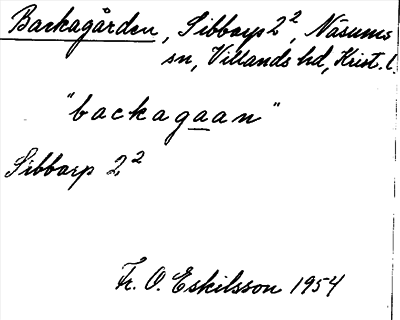 Backagården, Sibbarp 2², Näsums
sn, Villands hd, Krist. l.
"backagaan"
Sibbarp 2²
Fr. O. Eskilsson 1954